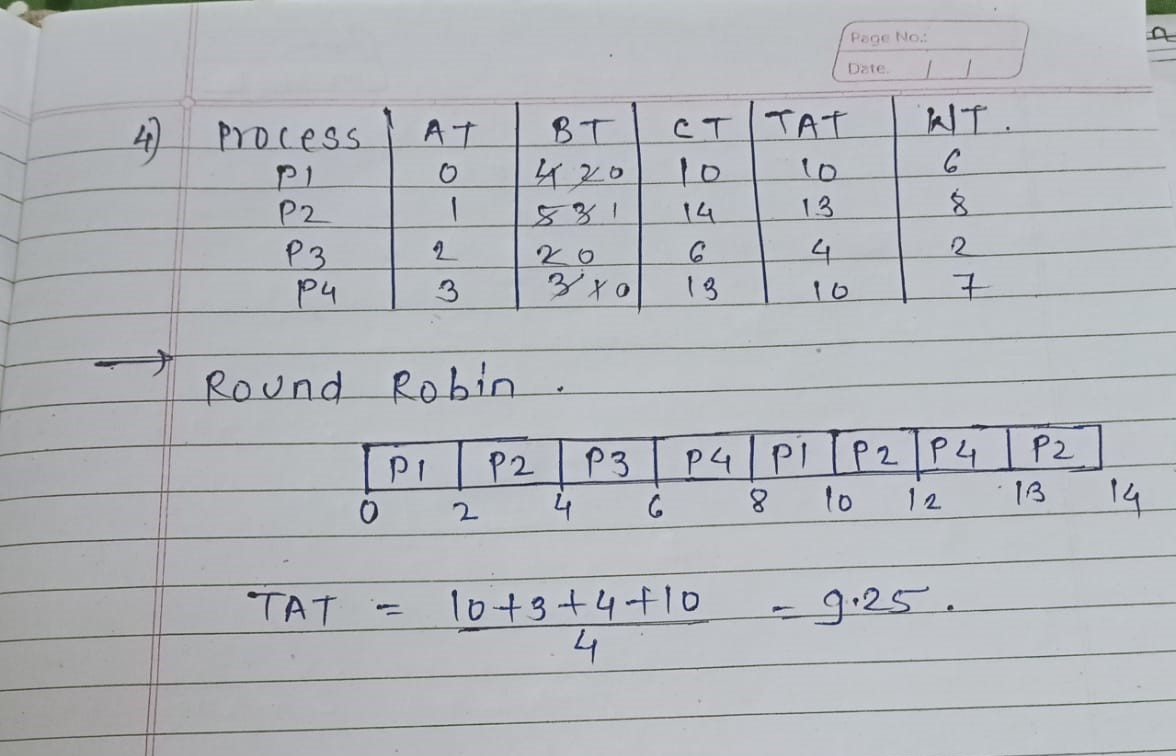 Page No.:
Date. / /
4) Process AT BT CT TAT WT.
P1 0 4 2 0 10 10 6
P2 1 5 3 1 14 13 8
P3 2 2 0 6 4 2
P4 3 3 1 0 13 10 7
→
Round Robin.
P1 P2 P3 P4 P1 P2 P4 P2
0 2 4 6 8 10 12 13 14
TAT = 10+3+4+10 - 9.25.
4